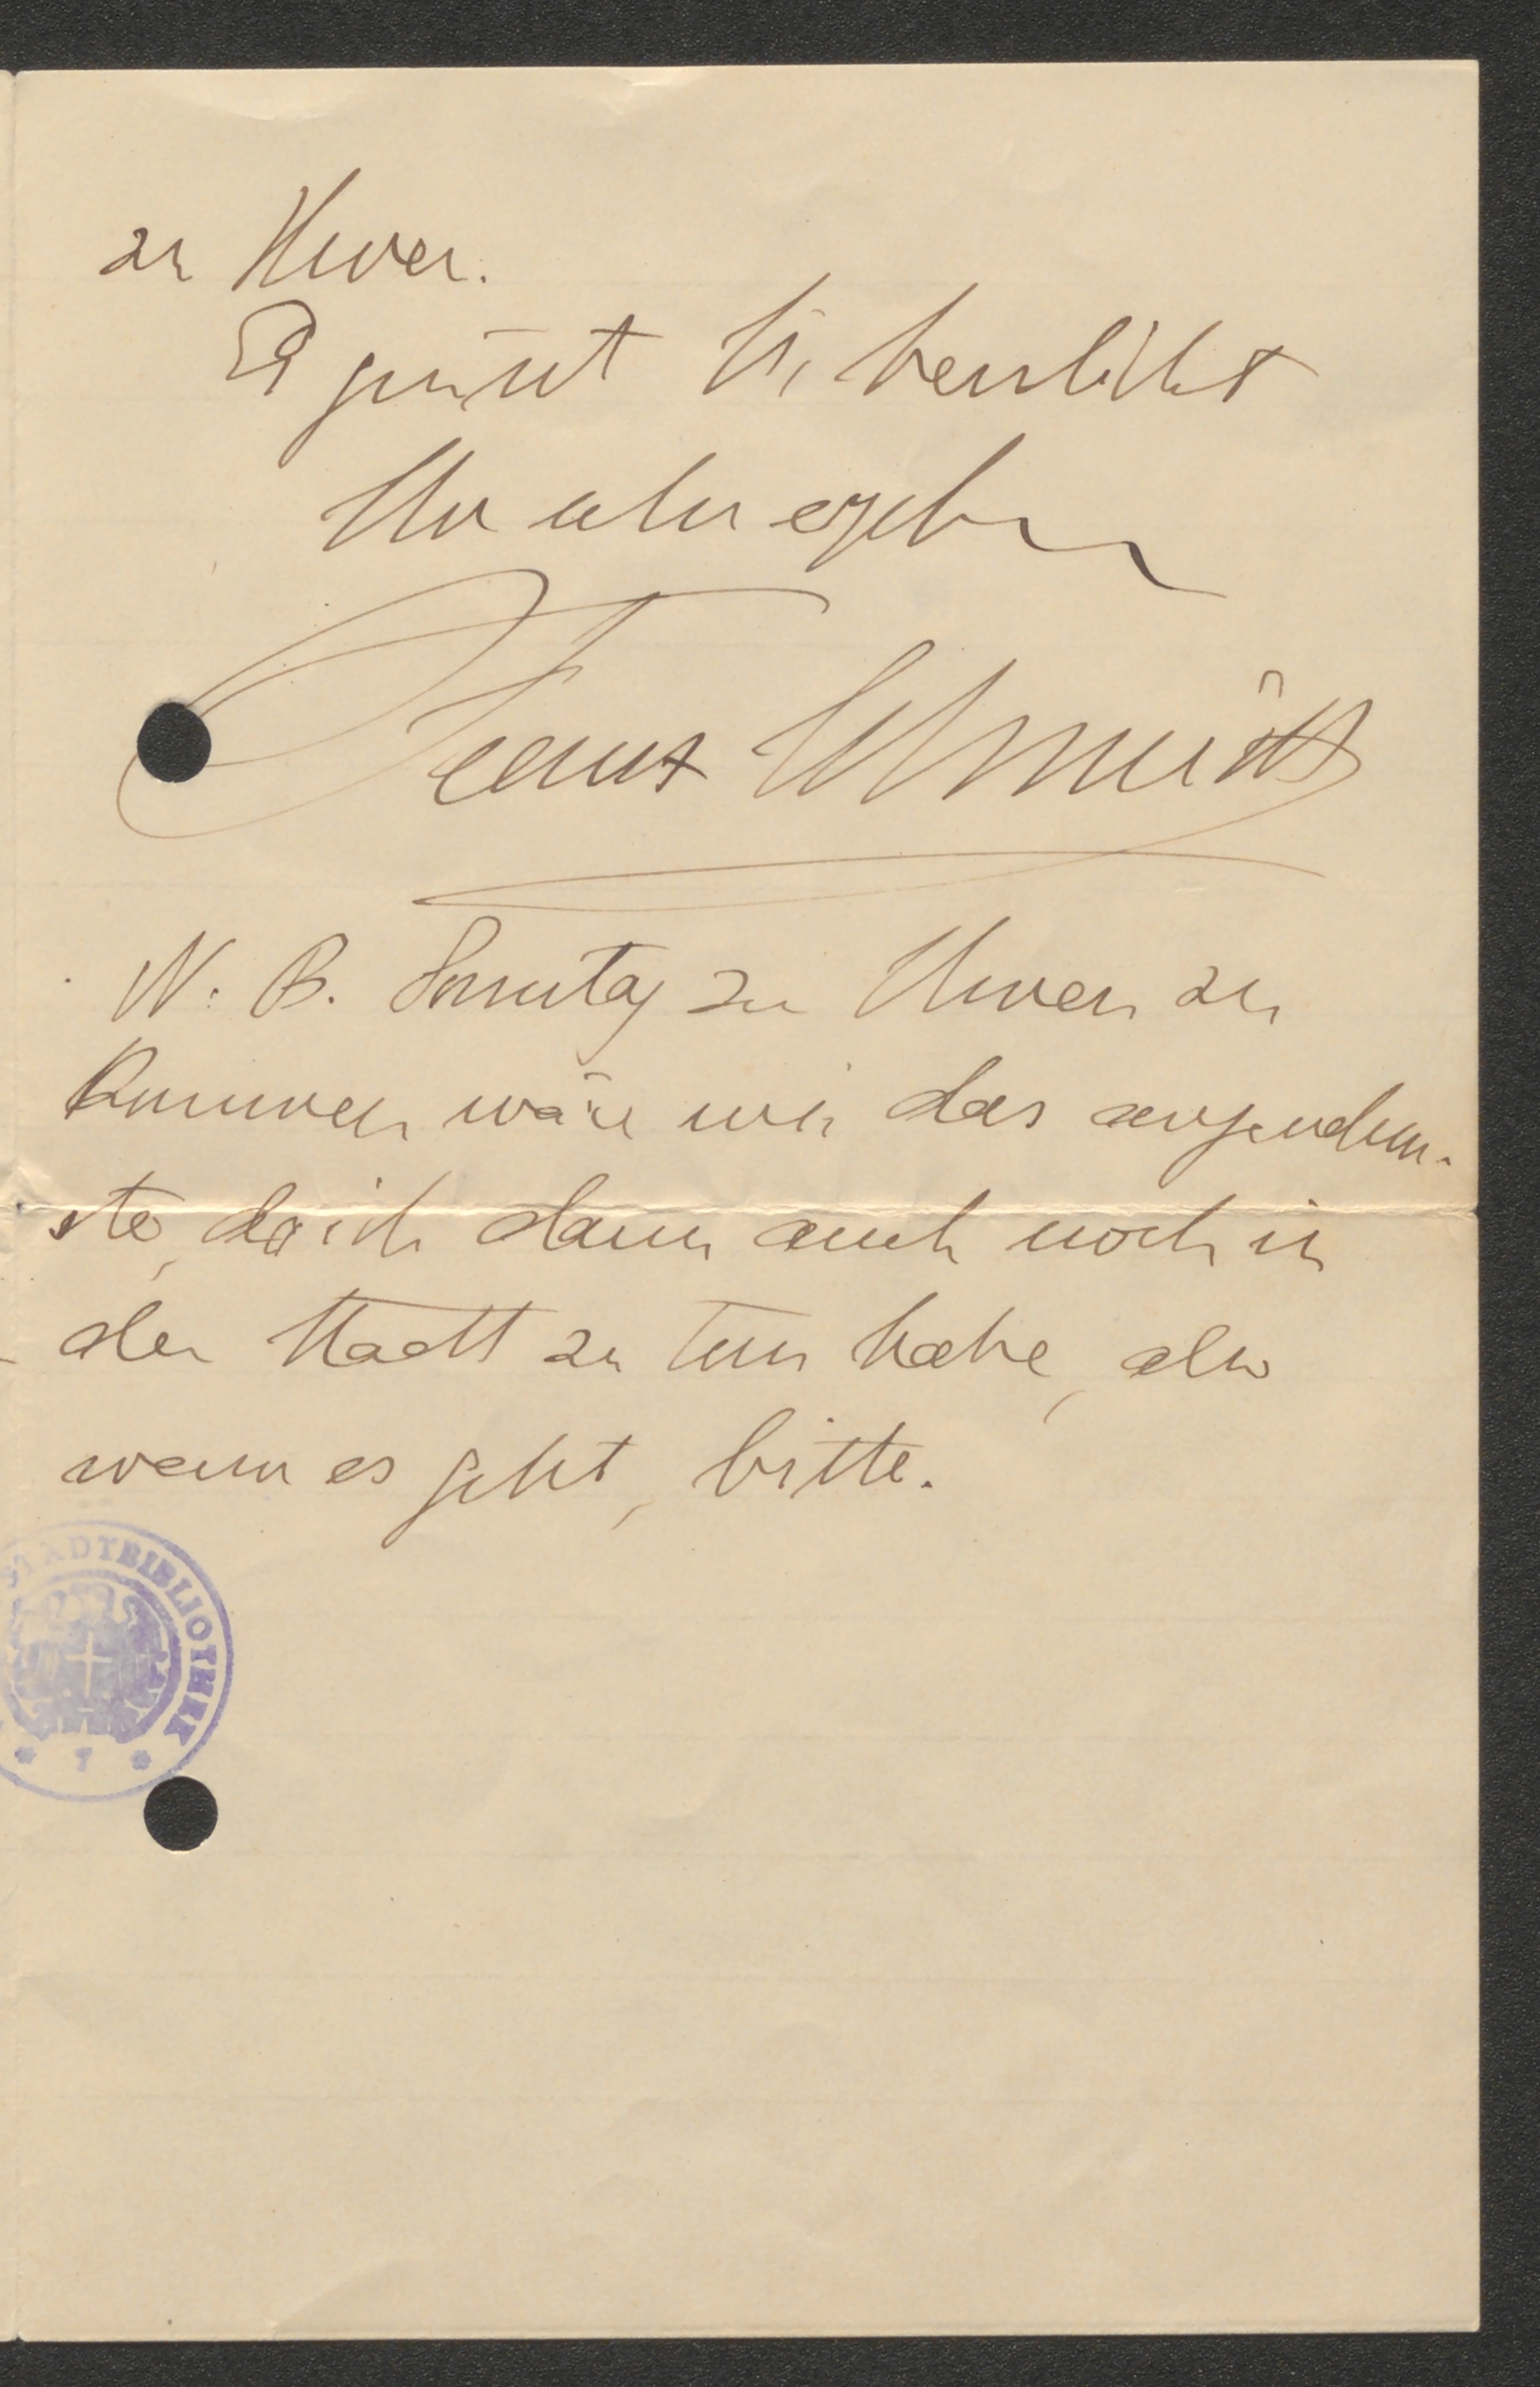 zu Ihnen.
Es grüsst Sie herzlichst
Ihr sehr ergebener
Franz Schmidt
N. B. Sonntag zu Ihnen zu
kommen wäre mir das angenehm-
ste, da ich dann auch noch in
der Stadt zu tun habe, also
wenn es geht, bitte.
STADTBIBLIOTHEK